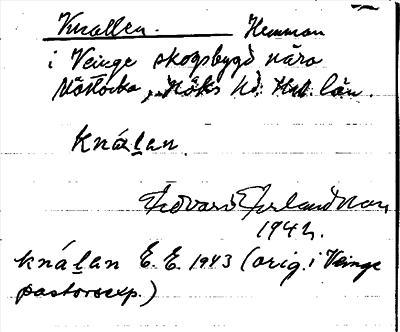 Knallen. Hemman
i Veinge skogsbygd nära
Mästocka, Höks hd. Hall. län.
Knál̲an.
Edvard Erlandsson
1942.
knál̲an E. E. 1943 (orig. i Veinge
pastorsexp.)